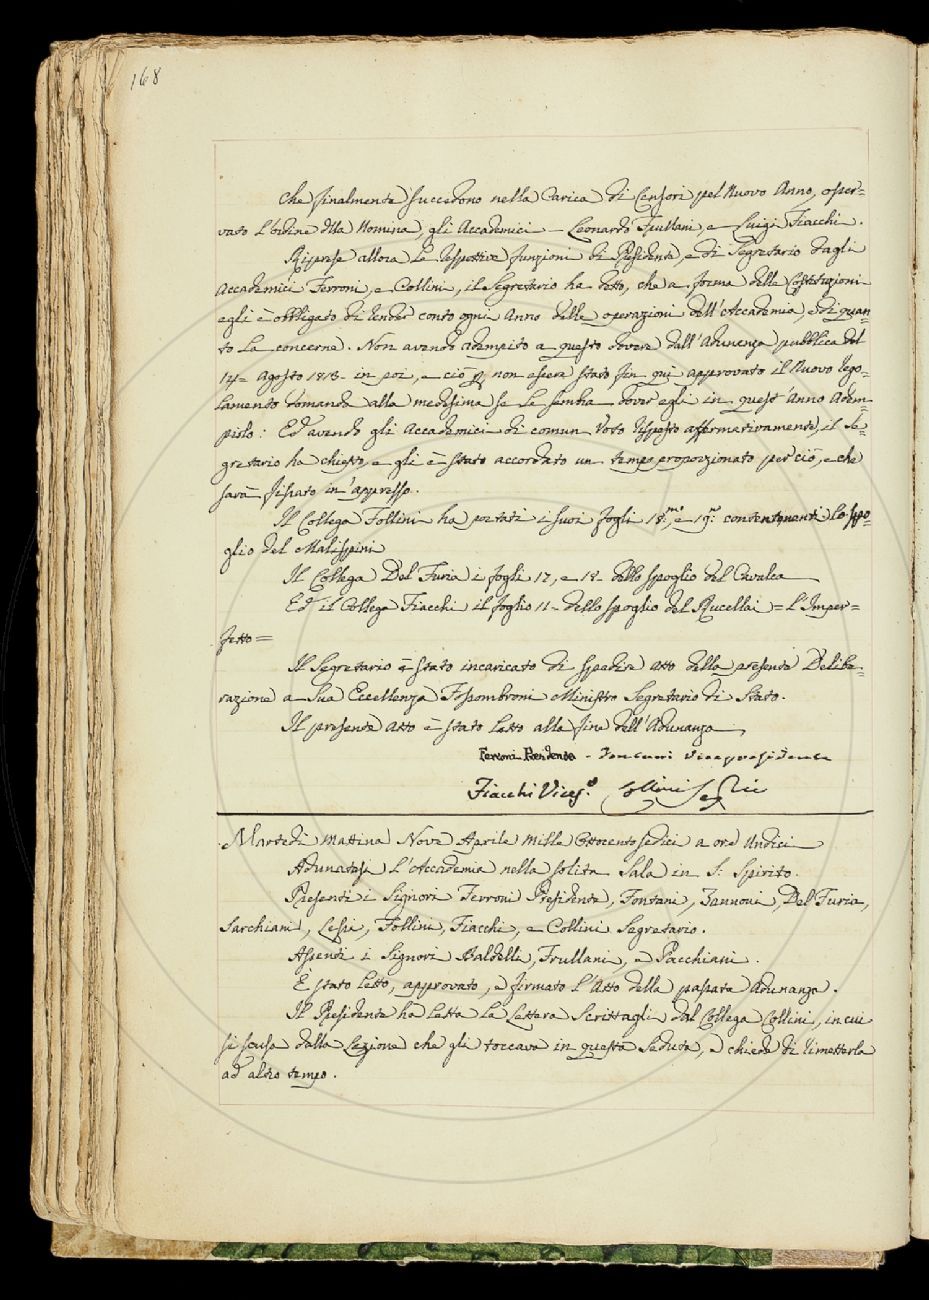 168
che finalmente succedono nella Carica di Censori pel Nuovo Anno, osser=
vato l'ordine dlla Nomina, gli Accademici — Leonardo Frullani, e Luigi Fiacchi.
Riprese allora le respettive funzioni di Presidente, e di Segretario dagli
Accademici Ferroni, e Collini, il Segretario ha detto, che a forma delle Costituzioni
egli è obbligato di render conto ogni Anno delle operazioni dell'Accademia, e di quan
to la concerne. Non avendo adempito a questo dovere dall'Adunanza pubblica del
14= Agosto 1813= in poi, e ciò p non essere stato fin qui approvato il Nuovo rego=
lamento domanda alla medesima se le sembra dover egli in quest'Anno Adem=
pirlo: Ed avendo gli Accademici di comun Voto risposto affermativamente, il Se=
gretario ha chiesto, e gli è stato accordato un tempo proporzionato per ciò, e che
sarà fissato in appresso.
Il Collega Follini ha portati i suoi fogli 18.mo, e 19.mo contenenti lo spo=
glio del Malispini
Il Collega Del Furia i fogli 17, e 18= dello spoglio del Cavalca
Ed il Collega Fiacchi il foglio 11= dello spoglio del Rucellai = l'Imper=
fetto=
Il Segretario è stato incaricato di spedire atto della presente Delibe=
razione a Sua Eccellenza Fossombroni Ministro Segretario di Stato.
Il presente Atto è stato letto alla fine dell'Adunanza
Ferroni Presidente - Fontani Vicepresidente
Fiacchi Vices.o Collini Seg.rio
Martedì mattina Nove Aprile Mille Ottocentosedici a ore Undici
Adunatasi l'Accademia nella solita Sala in S. Spirito.
Presenti i Signori Ferroni Presidente, Fontani, Zannoni, Del Furia,
Sarchiani, Lessi, Follini, Fiacchi, e Collini Segretario.
Assenti i Signori Baldelli, Frullani, e Pacchiani.
È stato letto, approvato, e firmato l'Atto della passata Adunanza.
Il Presidente ha letta la Lettera Scrittagli dal Collega Collini, in cui
si scusa dalla Lezione che gli toccava in questa Seduta, e chiede di rimetterla
ad altro tempo.